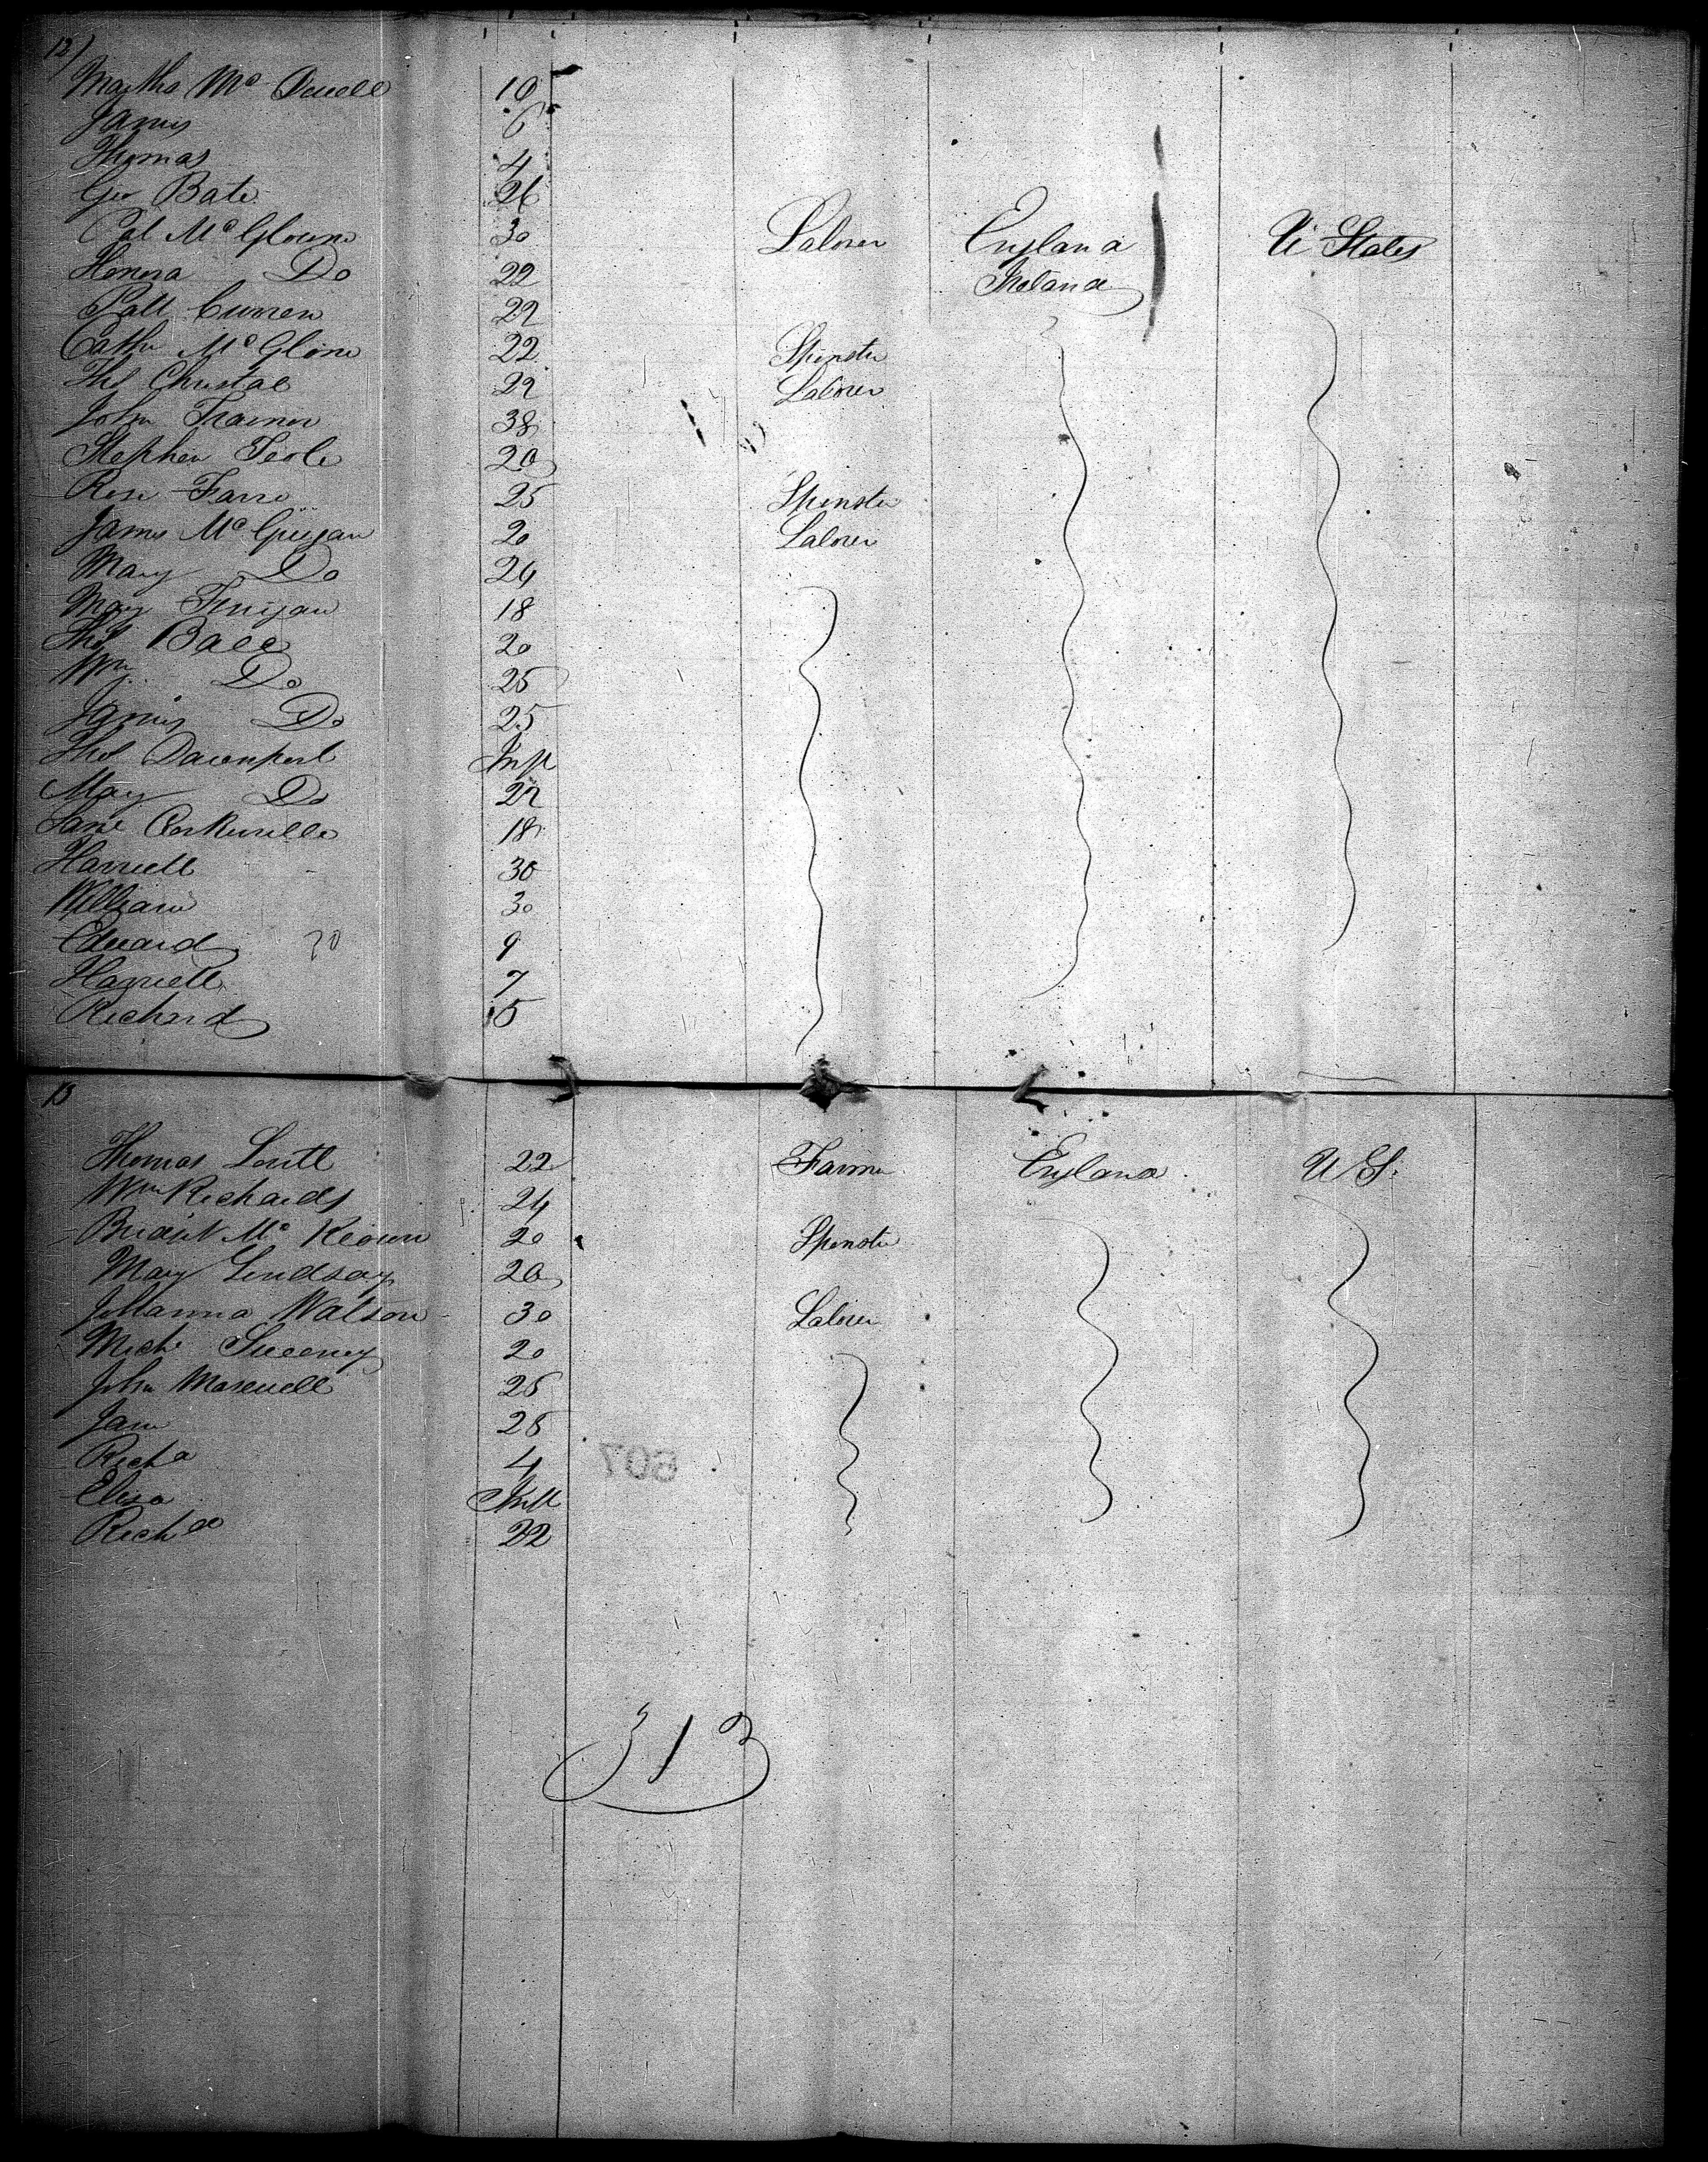 12)
Martha Mc Dowell 10
James 6
Thomas 4
Geo Bate 26
Pat McGlone 30 Laborer England U States
Honora Do 22 Ireland
Patt Curren 22
Cathe McGlone 22 Spinster
Ths Christal 22 Laborer
John Trainor 38
Stephen Teole 20
Rose Farre 25 Spinster
James McGuigan 20 Laborer
Mary Do 24
Mary Finigan 18
Thos Ball 20
Wm Do 25
James Do 25
Thos Davenport Inft
Mary Do 22
Jane 18
Harriett 30
William 30
Edward 70 9
Harriett 7
Richard 5
13
Thomas 22 Farmer England U S.
Wm Richards 24
Bridgt McKeown 20 Spinster
Mary Lindsay 20
Johanna Watson 30 Laborer
Michl Sweeney 20
John Maxwell 25
Jane 28
Richd 4
607
Eliza Inft
Richd 22
313